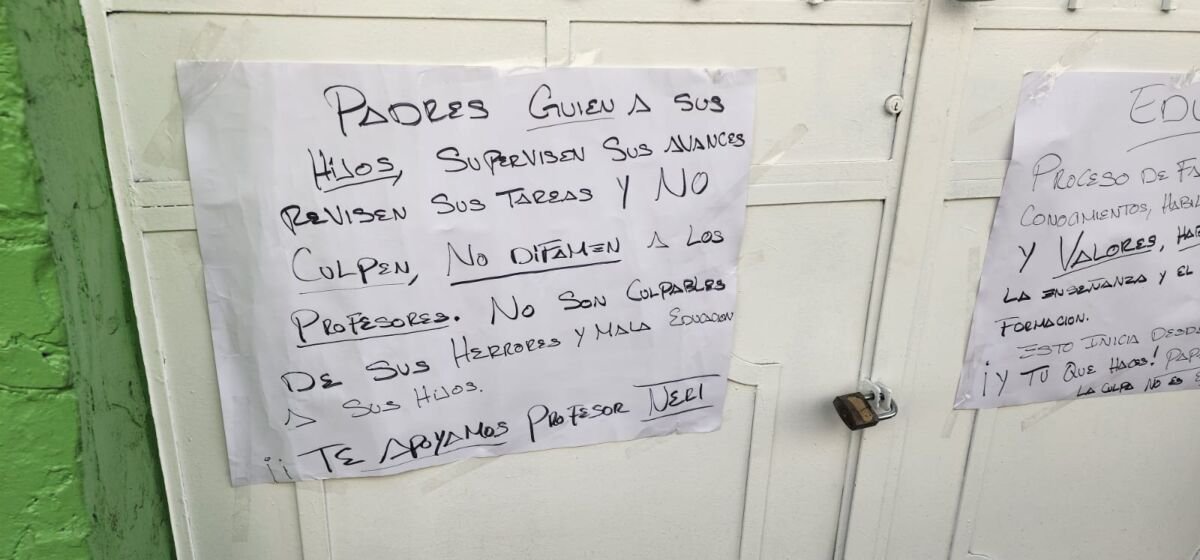 PADRES GUIEN A SUS
HIJOS, SUPERVISEN SUS AVANCES
REVISEN SUS TAREAS Y NO
CULPEN, NO DIFAMEN A LOS
PROFESORES. NO SON CULPABLES
DE SUS HERRORES Y MALA EDUCACION
A SUS HIJOS.
¡¡ TE APOYAMOS PROFESOR NERI
PROCESO DE
CONOCIMIENTOS,
Y VALORES,
LA ENSEÑANZA Y EL
FORMACION.
ESTO INICIA
¡Y TU QUE HACES!
LA CULPA NO ES